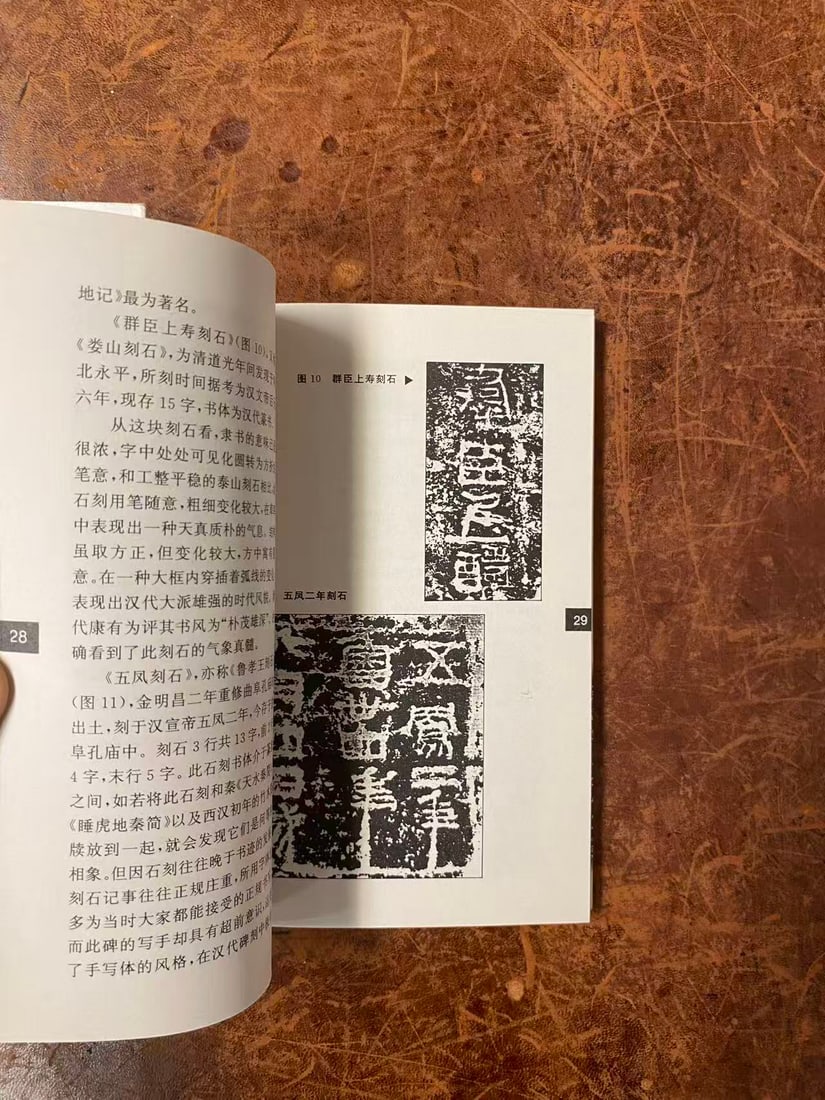 地记》最为著名。
《群臣上寿刻石》(图10),
《娄山刻石》,为清道光年间发现于
北永平,所刻时间据考为汉文帝
六年,现存15字,书体为汉代篆书。
从这块刻石看,隶书的意味已
很浓,字中处处可见化圆转为方折
笔意,和工整平稳的泰山刻石相比,
石刻用笔随意,粗细变化较大,在
中表现出一种天真质朴的气息。
虽取方正,但变化较大,方中寓
意。在一种大框内穿插着弧线的变
表现出汉代大派雄强的时代风貌,
代康有为评其书风为“朴茂雄深”,
确看到了此刻石的气象真髓。
《五凤刻石》,亦称《鲁孝王刻
(图11),金明昌二年重修曲阜孔
出土,刻于汉宣帝五凤二年,今存
阜孔庙中。刻石3行共13字,前
4字,末行5字。此石刻书体介于
之间,如若将此石刻和秦《天水秦
《睡虎地秦简》以及西汉初年的竹
牍放到一起,就会发现它们是何
相象。但因石刻往往晚于书迹的发
刻石记事往往正规庄重,所用字
多为当时大家都能接受的正规
而此碑的写手却具有超前意识,
了手写体的风格,在汉代碑刻中
28
图10 群臣上寿刻石▶
群臣上醻
五凤二年刻石
五鳳二年
魯卅四年
29